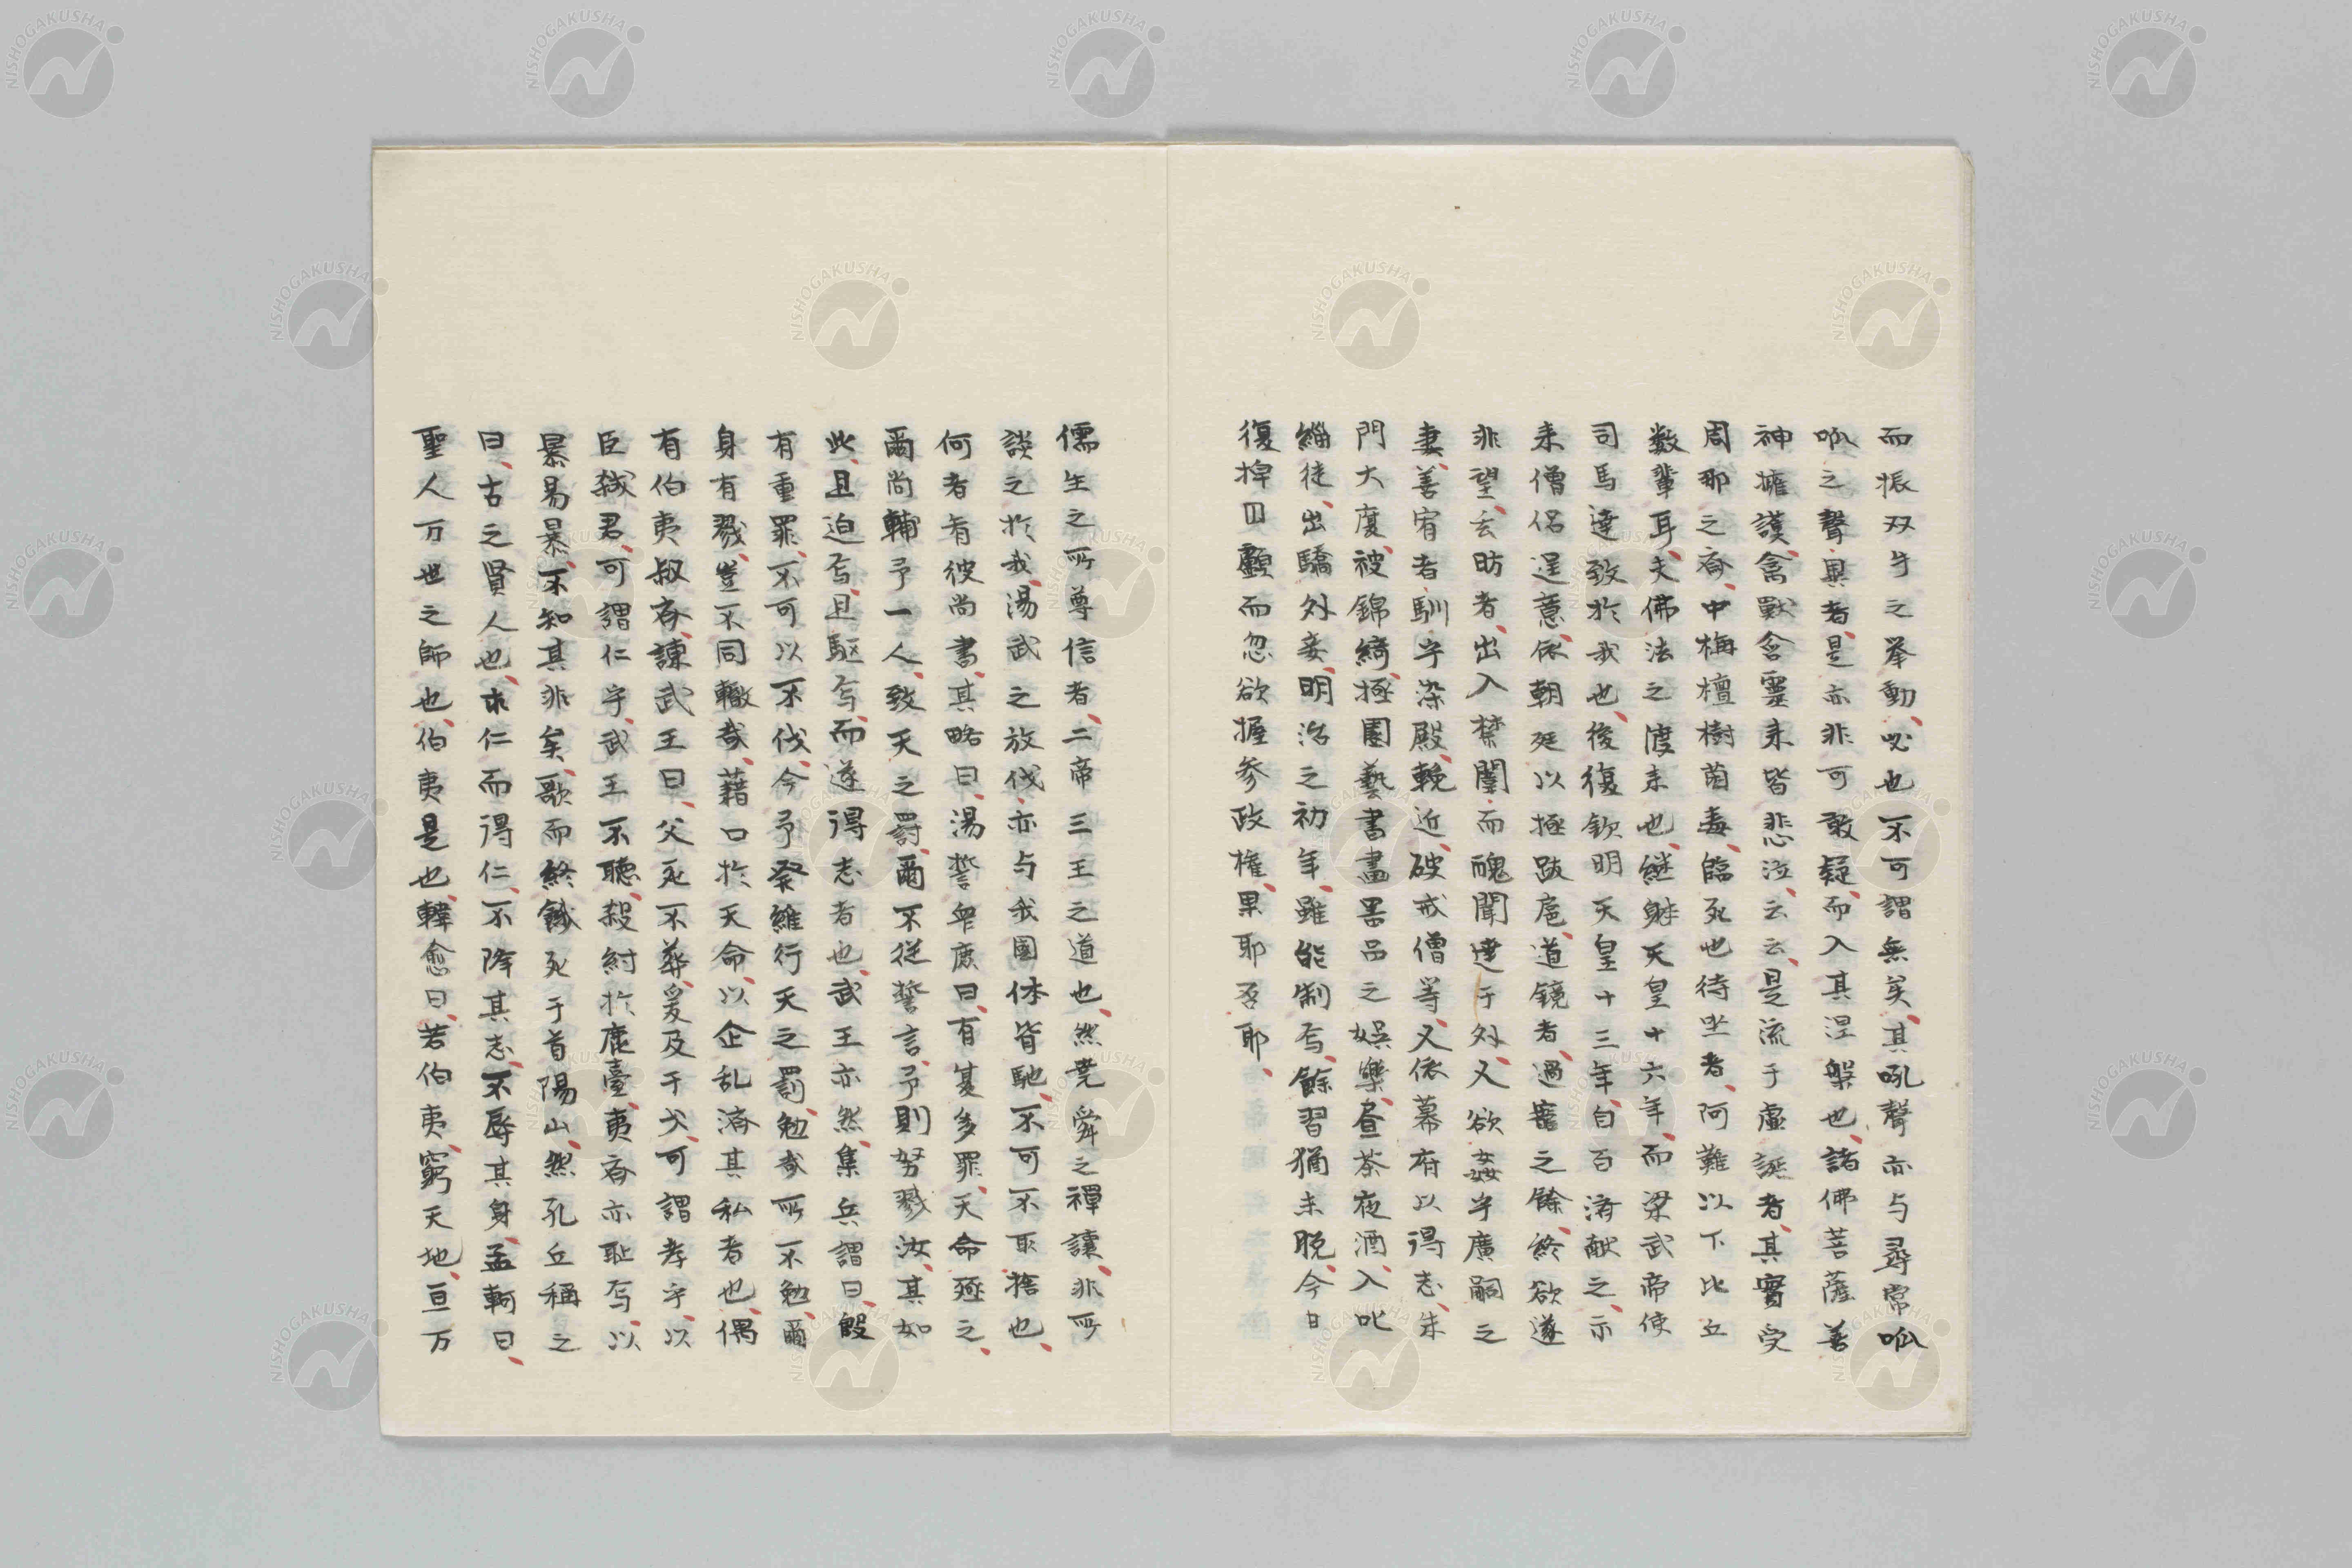 而振双手之挙動、必也不可謂無矣、其吼聲亦与尋常呱
呱之聲異者、是亦非可敢疑、而入其涅槃也、諸佛菩薩善
神擁護、禽獸含靈来皆悲泣云云、是流于虚誕者、其實受
周那之斎、中栴檀樹茵毒、臨死也待坐者、阿難以下比丘
数輩耳、夫佛法之渡来也、継体天皇十六年、而梁武帝使
司馬達致於我也、後復欽明天皇十三年、自百済献之、示
来僧侶逞意、依朝廷以極跋扈、道鏡者、過寵之餘、終欲遂
非望、玄昉者、出入禁闥、而醜聞達于外、又欲姦乎廣嗣之
妻、善宥者馴乎染殿、輓近、破戒僧等、又依幕府以得志、朱
門大廈、被錦綺、極園藝書畫器品之娯樂、昼茶夜酒、入叱
緇徒、出驕外妾、明治之初年、雖能制焉、餘習猶未脱、今日
復捭四顧而忽欲握参政權、果耶否耶、
儒生之所尊信者、二帝三王之道也、然尭舜之禪讓、非所
談之於我、湯武之放伐、亦与我國体皆馳、不可不取捨也、
何者有彼尚書、其略曰、湯誓衆庶曰、有夏多罪、天命殛之、
爾尚輔予一人、致天之罰、爾不従誓言、予則努戮汝、其如
此、且迫焉、且駆焉、而遂得志者也、武王亦然、集兵謂曰、殷
有重罪、不可以不伐、今予発維行天之罰、勉哉、所不勉、爾
身有戮、豈不同轍哉、藉口於天命、以企乱済其私者也、偶
有伯夷叔斉、諌武王曰、父死不葬、爰及于戈、可謂孝乎、以
臣弑君、可謂仁乎、武王不聴、殺紂於鹿臺、夷斉亦恥焉、以
暴易暴、不知其非矣、歌而終餓死于首陽山、然孔丘稱之
曰、古之賢人也、求仁而得仁、不降其志、不辱其身、孟軻曰、
聖人万世之師也、伯夷是也、韓愈曰、若伯夷、窮天地、亘万